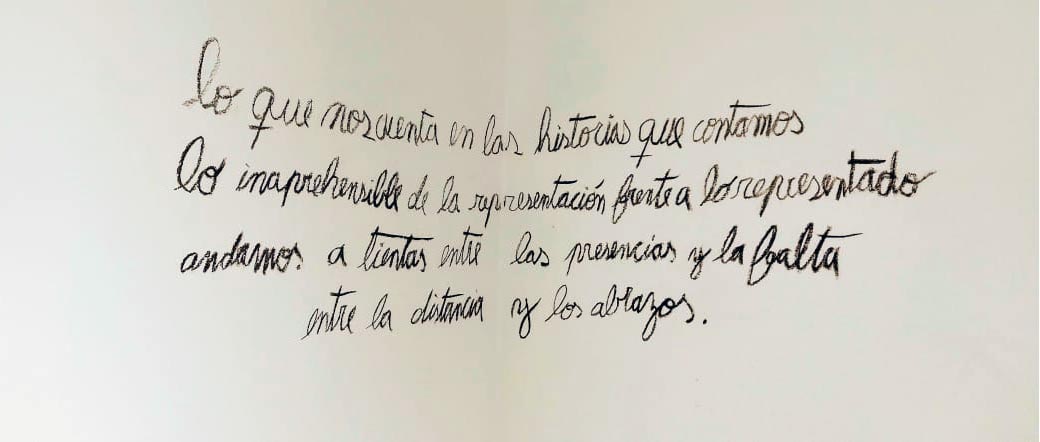 lo que nos cuenta en las historias que contamos
lo inaprehensible de la representación frente a lo representado
andamos a tientas entre las presencias y la falta
entre la distancia y los abrazos.